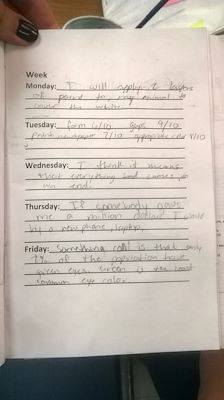 Week
Monday: I will apply 2 layers
of paint to my animal to
cover the white.
Tuesday: form 6/10 Gaps 9/10
Print newspaper 7/10 appropriate color 8/10
Wednesday: I think it means
that everything bad comes to
an end.
Thursday: If somebody gave
me a million dollars I would
by a new phone, laptop,
Friday: Something cool is that only
2% of the population have
green eyes. Green is the least
common eye color.